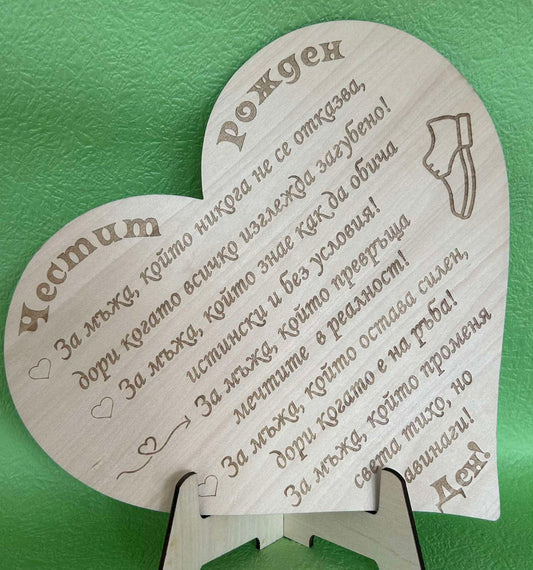 Честит
Рожден
За мъжа, който никога не се отказва,
дори когато всичко изглежда загубено!
За мъжа, който знае как да обича
истински и без условия!
За мъжа, който превръща
мечтите в реалност!
За мъжа, който остава силен,
дори когато е на ръба!
За мъжа, който променя
света тихо, но
авинаги!
Ден!